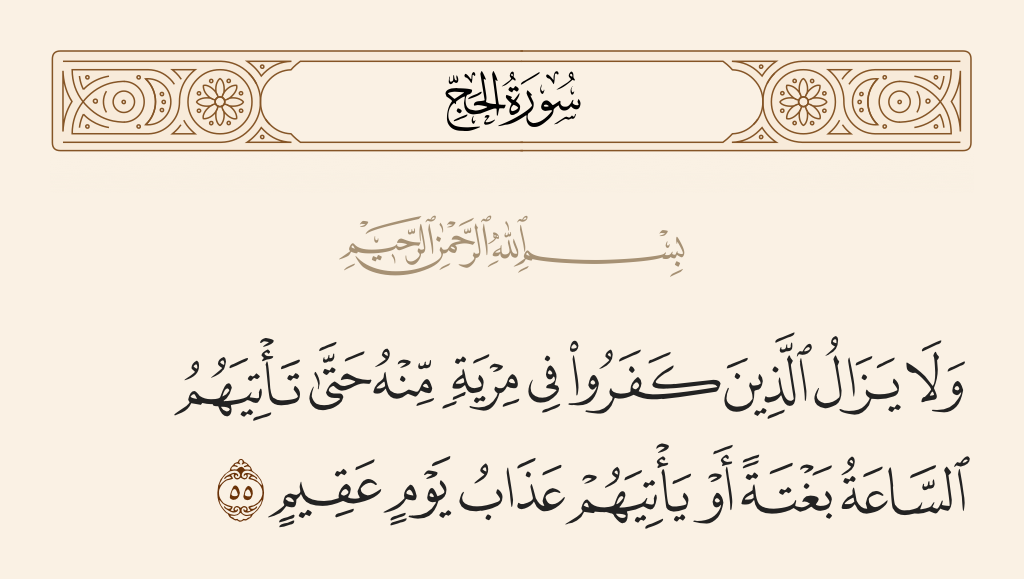 سُورَةُ الْحَجِّ
بِسْمِ ٱللَّهِ ٱلرَّحْمَٰنِ ٱلرَّحِيمِ
وَلَا يَزَالُ ٱلَّذِينَ كَفَرُوا۟ فِى مِرْيَةٍ مِّنْهُ حَتَّىٰ تَأْتِيَهُمُ
ٱلسَّاعَةُ بَغْتَةً أَوْ يَأْتِيَهُمْ عَذَابُ يَوْمٍ عَقِيمٍ ٥٥